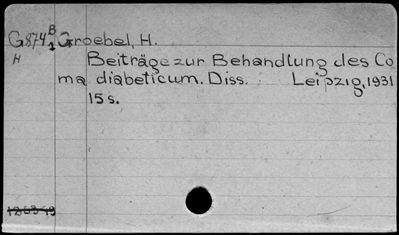 G874 B Groebel, H.
H 1
Beiträge zur Behandlung des Co
ma diabeticum. Diss. Leipzig, 1931
15 s.